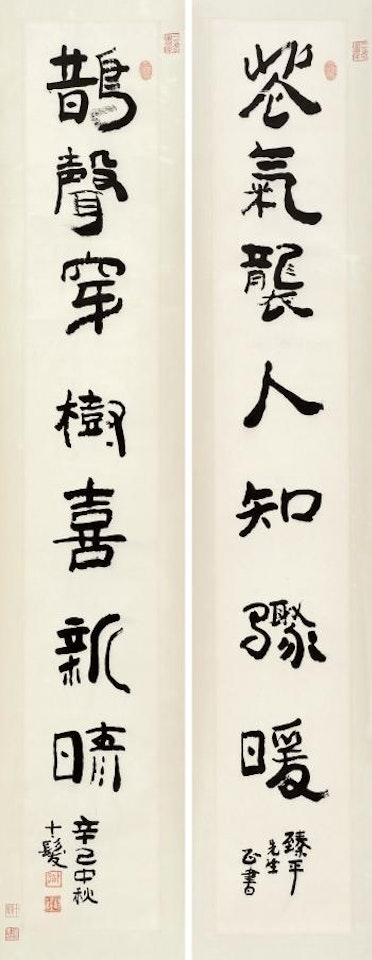 花氣襲人知驟暖
臻平
先生
正書
鵲聲穿樹喜新晴
辛巳中秋
十髮